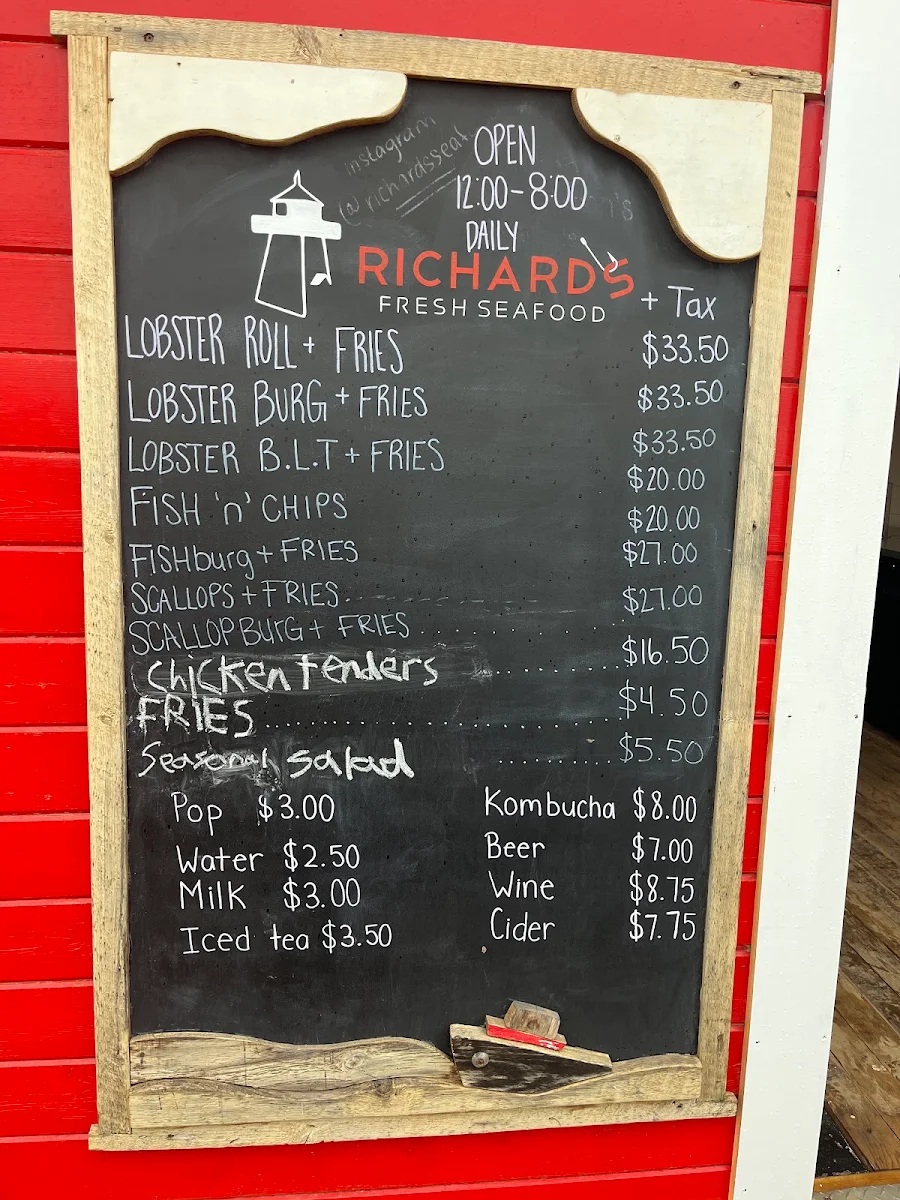 instagram
@richardsseaf
OPEN
12:00-8:00
DAILY
RICHARDS
FRESH SEAFOOD
+ Tax
LOBSTER ROLL + FRIES $33.50
LOBSTER BURG + FRIES $33.50
LOBSTER B.L.T + FRIES $33.50
FISH 'n' CHIPS $20.00
FISHburg + FRIES $20.00
SCALLOPS + FRIES $27.00
SCALLOPBURG + FRIES $27.00
chicken tenders $16.50
FRIES $4.50
Seasonal salad $5.50
Pop $3.00
Water $2.50
Milk $3.00
Iced tea $3.50
Kombucha $8.00
Beer $7.00
Wine $8.75
Cider $7.75